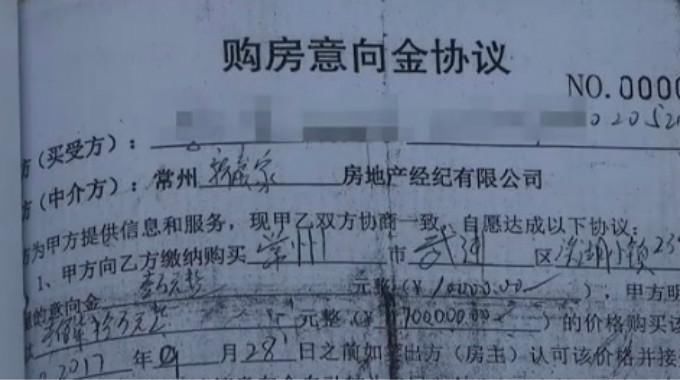 购房意向金协议
NO.0000
020520
方(买受方):
方(中介方):常州 房地产经纪有限公司
方为甲方提供信息和服务,现甲乙双方协商一致,自愿达成以下协议:
1、甲方向乙方缴纳购买 常州 市 武进 区 滆湖 镇 239
的意向金 壹万元整 元整(¥ 10000.00 ),甲方明
万元整 元整(¥ 900000.00 )的价格购买该
2017 年 09 月 28 日之前如卖出方(房主)认可该价格并接